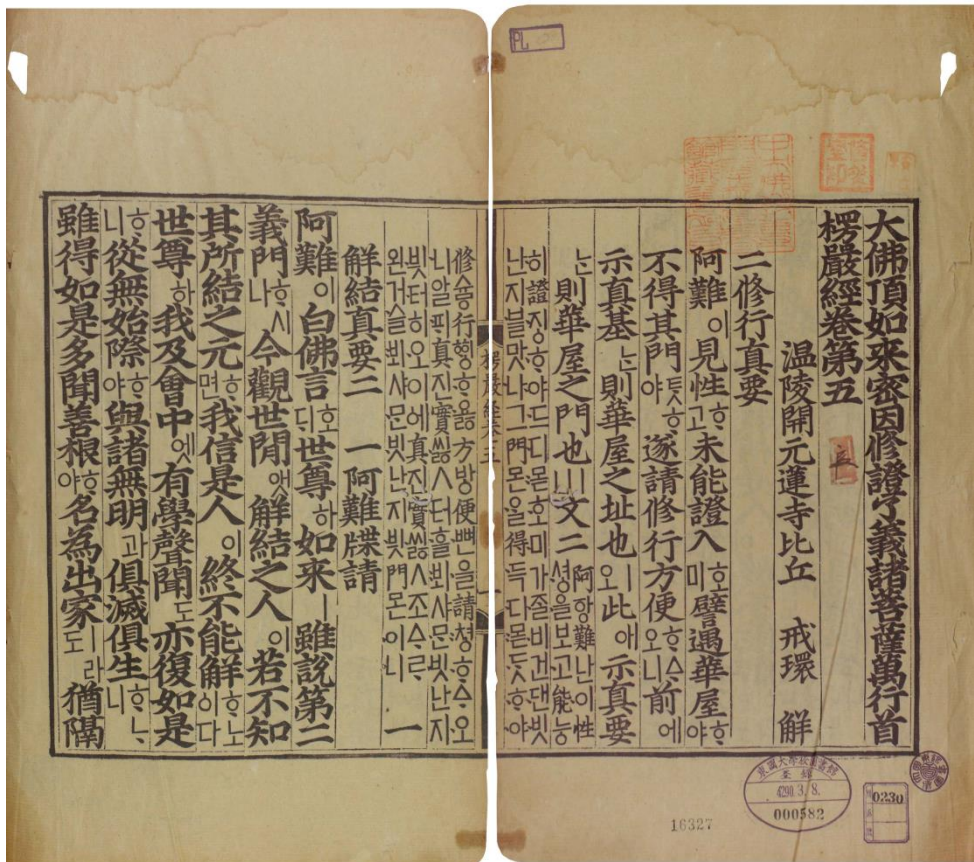 大佛頂如來密因修證了義諸菩薩萬行首
楞嚴經卷第五
温陵開元蓮寺比丘 戒環 解
二修行真要
阿難이見性ᄒᆞ고未能證入호미譬遇華屋ᄒᆞ야
不得其門ᄐᆞᆺᄒᆞ야遂請修行方便ᄒᆞᅀᆞ오니前에
示真基ᄂᆞᆫ則華屋之址也ㅣ오此애示真要
ᄂᆞᆫ則華屋之門也ㅣ라文二 阿항難난이性
셩을보고能능
히證징ᄒᆞ야드디몯호미가ᄌᆞᆯ비건댄빗
난지블맛나그門몬ᄋᆞᆯ得득디몯ᄃᆞᆺᄒᆞ야
楞嚴經卷五
一
修슈行ᄒᆡᆼᄒᆞᇙ方방便뼌을請쳥ᄒᆞᅀᆞ오
니알ᄑᆡ真진實씷ㅅ터흘뵈샤ᄆᆞᆫ빗난지
븻터히오이에真진實씷ㅅ조ᅀᆞᄅᆞ
왼거슬뵈샤ᄆᆞᆫ빗난지븻門몬이니 一
解結真要二 一阿難牒請
阿難이白佛言호ᄃᆡ世尊하如來ㅣ雖說第二
義門ᄒᆞ시나今觀世間앳解結之人이若不知
其所結之元ᄒᆞ면我信是人이終不能解ᄒᆞ노이다
世尊하我及會中엣有學聲聞도亦復如是
ᄒᆞ니從無始際ᄒᆞ야與諸無明과俱滅俱生ᄒᆞᄂᆞ니
雖得如是多聞善根ᄒᆞ야名為出家ㅣ라도猶隔
PL
東國大學校圖書館
登錄
4290.3.8.
000582
0230
16327